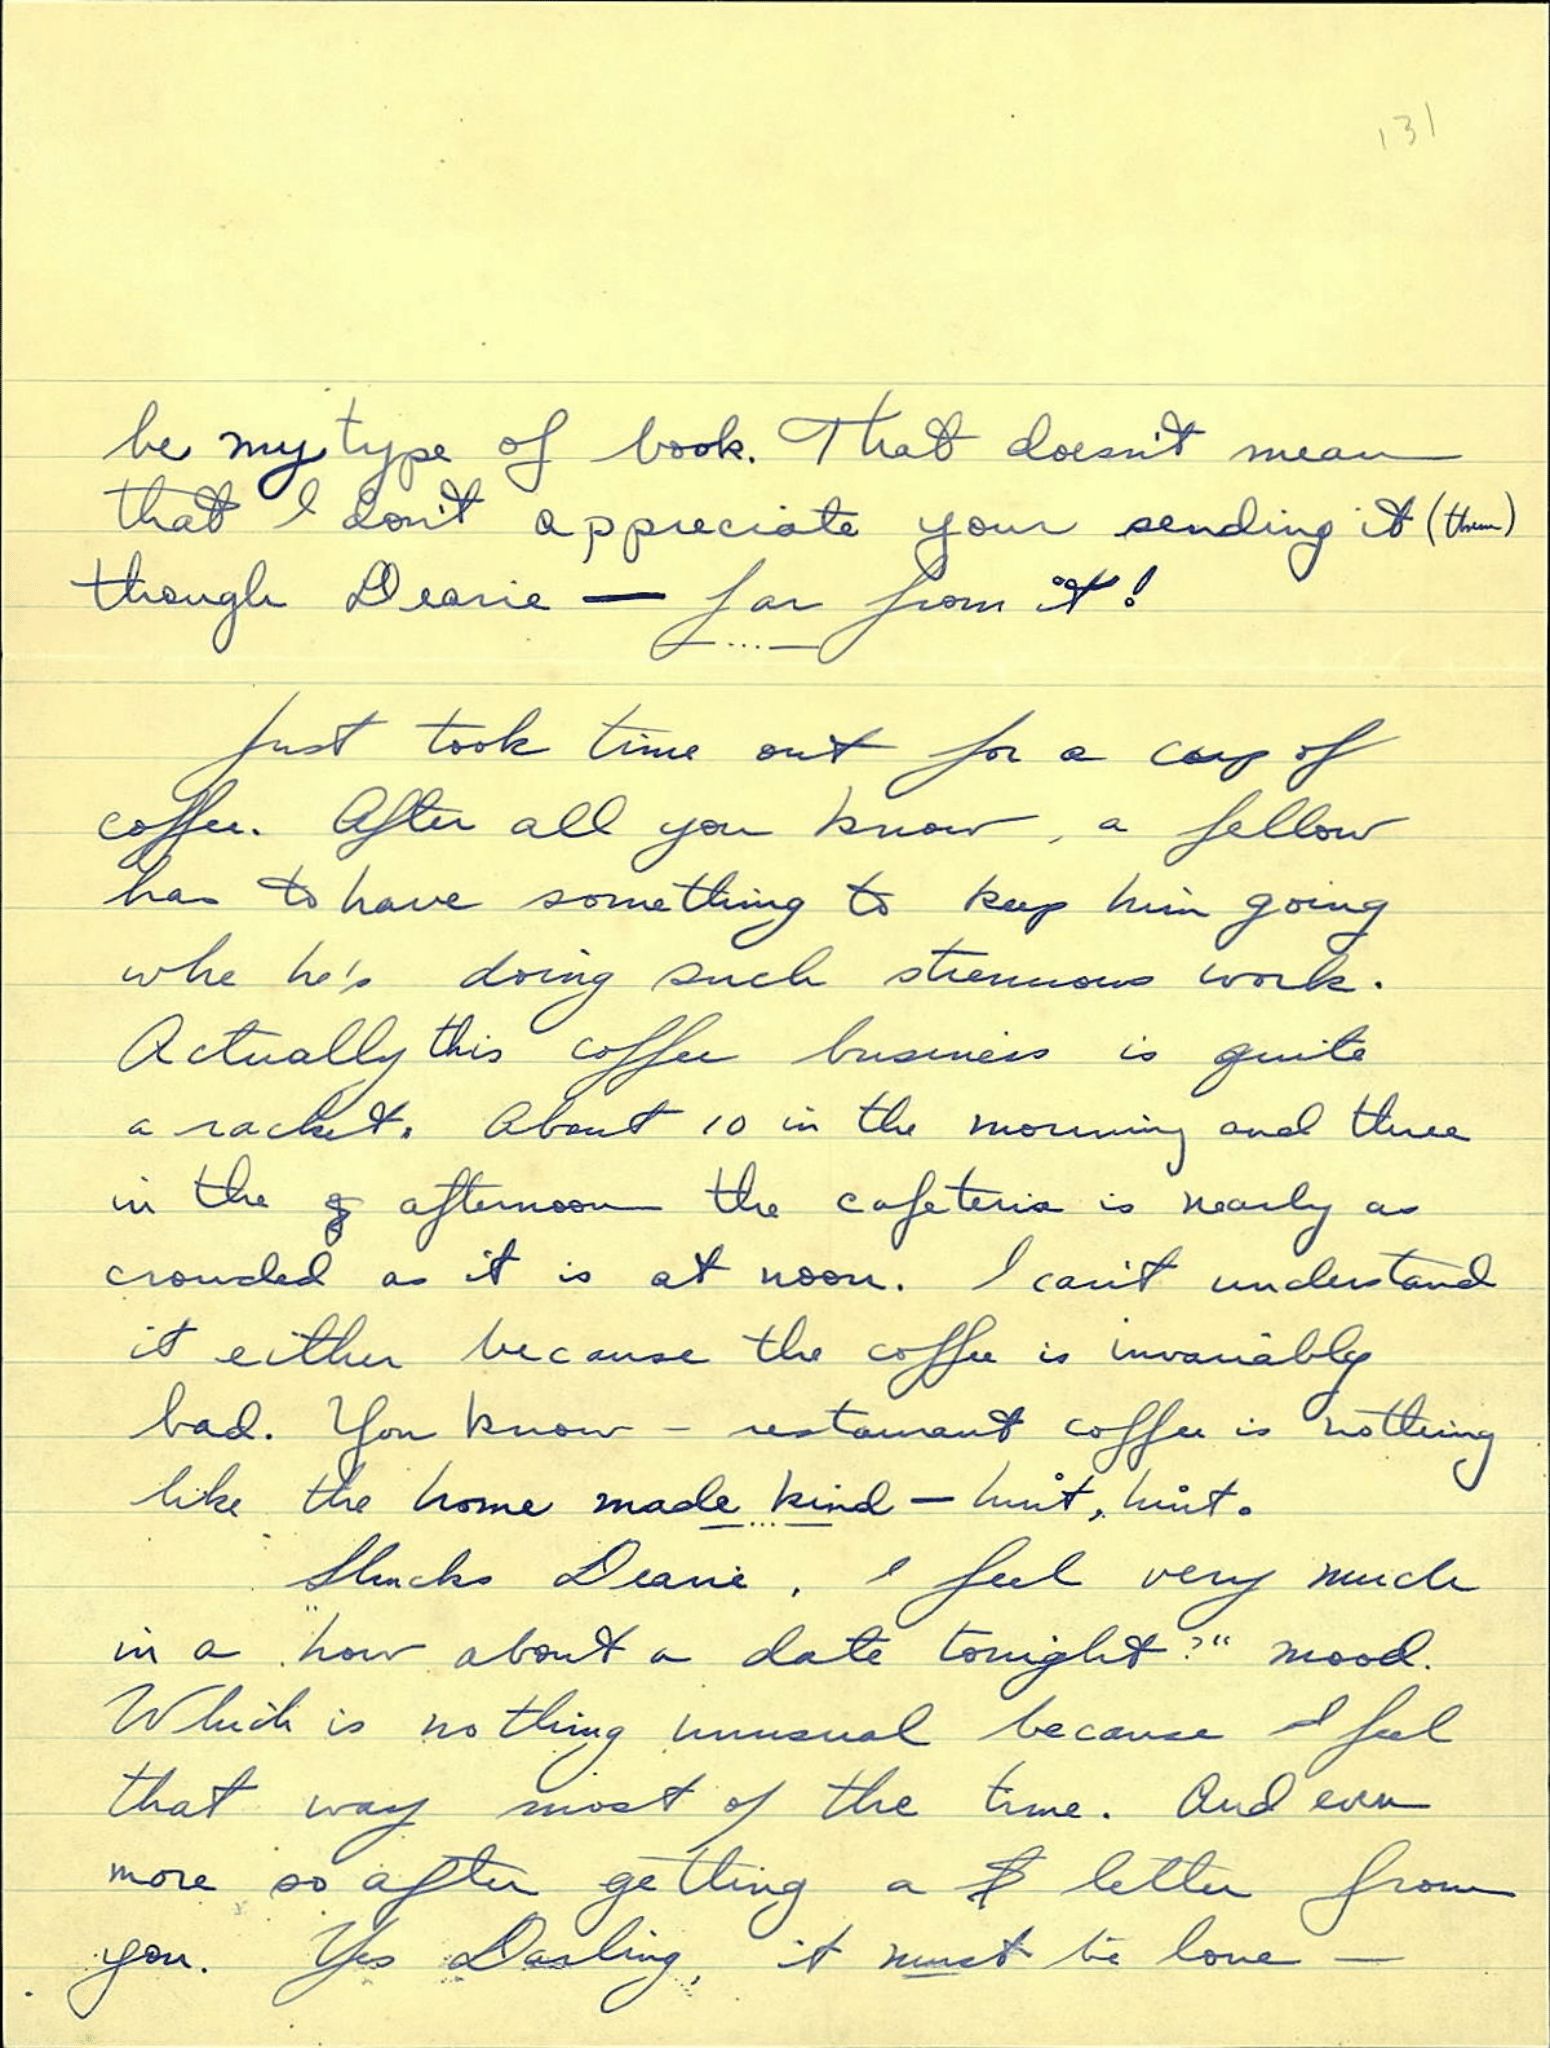 131
be my type of book. That doesn't mean
that I don't appreciate your sending it (them)
though Dearie — far from it!
— ... —
Just took time out for a cup of
coffee. After all you know, a fellow
has to have something to keep him going
whe he's doing such strenuous work.
Actually this coffee business is quite
a racket. About 10 in the morning and three
in the afternoon the cafeteria is nearly as
crowded as it is at noon. I can't understand
it either because the coffee is invariably
bad. You know – restaurant coffee is nothing
like the home made kind — hint, hint.
— ... —
Shucks Dearie, I feel very much
in a "how about a date tonight?" mood.
Which is nothing unusual because I feel
that way most of the time. And even
more so after getting a letter from
you. Yes Darling, it must be love —